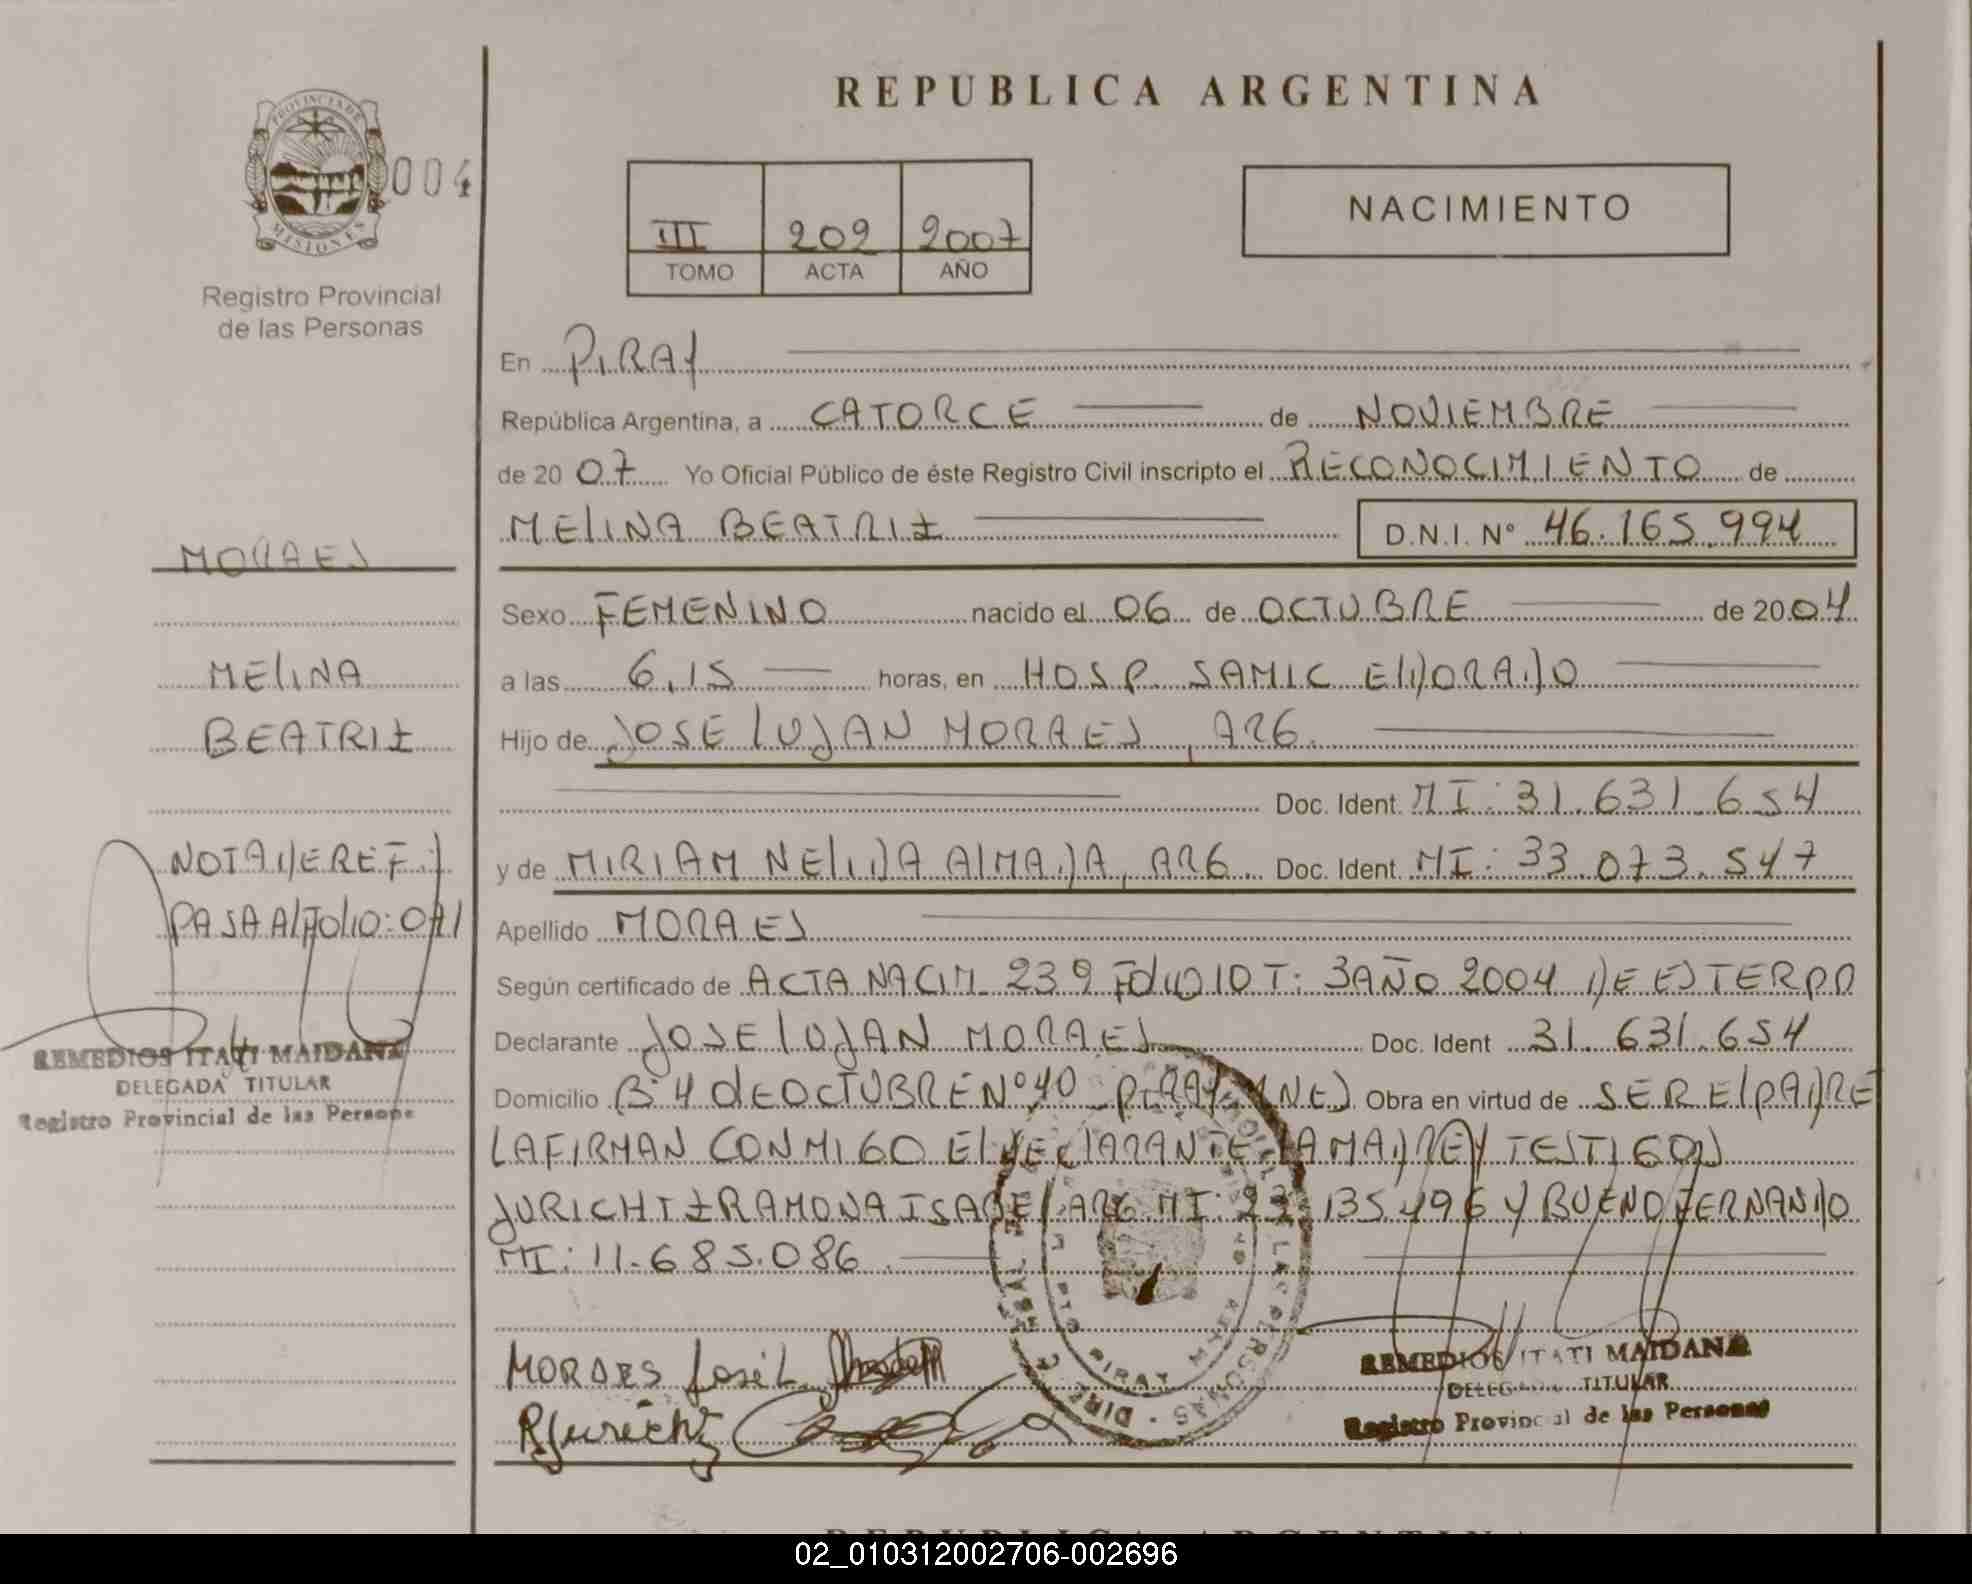 REPUBLICA ARGENTINA
PROVINCIA DE
MISIONES
004
Registro Provincial
de las Personas
III 202 2007
TOMO ACTA AÑO
NACIMIENTO
En PIRAY
República Argentina, a CATORCE de NOVIEMBRE
de 2007 Yo Oficial Público de éste Registro Civil inscripto el RECONOCIMIENTO de
MELINA BEATRIZ D.N.I. Nº 46.165.994
MORAES
Sexo FEMENINO nacido el 06 de OCTUBRE de 2004
MELINA
a las 6,15 horas, en HOSP. SAMIC ELDORADO
BEATRIZ
Hijo de JOSE LUJAN MORAES, ARG.
Doc. Ident. MI: 31.631.654
NOTA DE REF.
y de MIRIAM NELIDA ALMADA, ARG Doc. Ident. MI: 33.073.547
PASA A FOLIO: 071
Apellido MORAES
Según certificado de ACTA NACIM. 239 FOLIO 10 T: 3 AÑO 2004 DE ESTE RPP
Declarante JOSE LUJAN MORAES Doc. Ident 31.631.654
REMEDIOS ITATI MAIDANA
DELEGADA TITULAR
Registro Provincial de las Persone
Domicilio Bº 4 DE OCTUBRE Nº 40 PIRAY MNES Obra en virtud de SER EL PADRE
LA FIRMAN CONMIGO EL DECLARANTE LA MADRE Y TESTIGOS
JURICHIZ RAMONA ISABEL ARG MI: 135.496 Y BUENO FERNANDO
MI: 11.685.086
MORAES José L.
RJurichiz
PIRAY
LAS PERSONAS
REMEDIOS ITATI MAIDANA
DELEGADA TITULAR
Registro Provincial de las Personas
REPUBLICA ARGENTINA
02_010312002706-002696